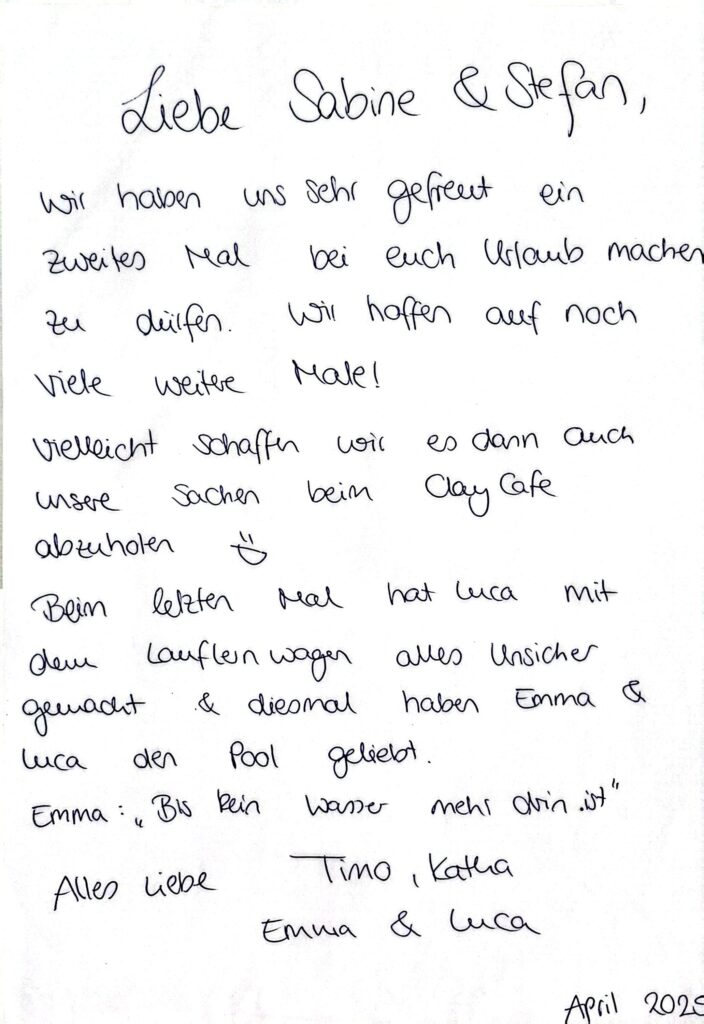 Liebe Sabine & Stefan,
wir haben uns sehr gefreut ein
zweites Mal bei euch Urlaub machen
zu dürfen. Wir hoffen auf noch
viele weitere Male!
vielleicht schaffen wir es dann auch
unsere Sachen beim Clay Cafe
abzuholen
Beim letzten Mal hat Luca mit
dem Lauflernwagen alles Unsicher
gemacht & diesmal haben Emma &
Luca den Pool geliebt.
Emma: „Bis kein Wasser mehr drin ist“
Alles Liebe Timo, Katha
Emma & Luca
April 2025